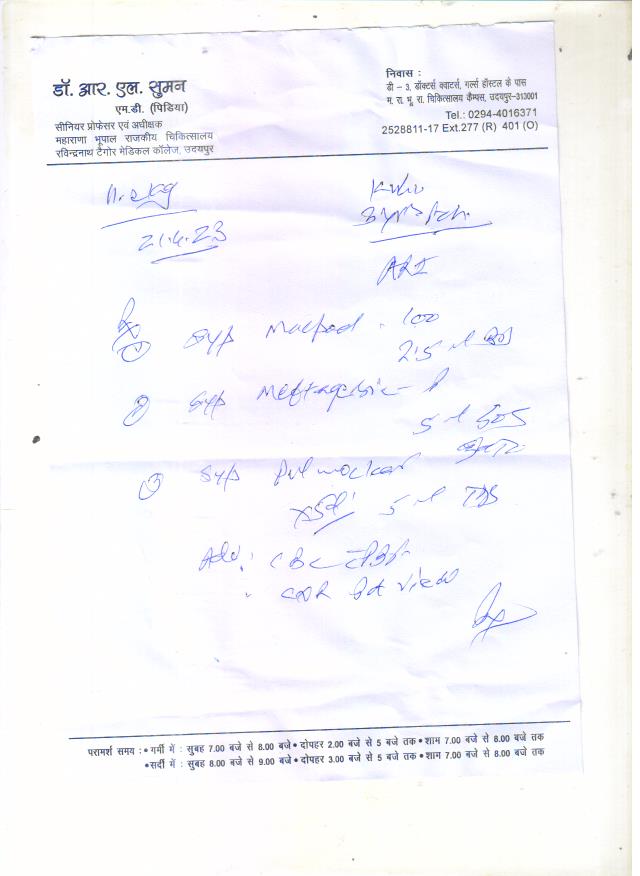 डॉ. आर. एल. सुमन
एम.डी. (पिडिया)
सीनियर प्रोफेसर एवं अधीक्षक
महाराणा भूपाल राजकीय चिकित्सालय
रविन्द्रनाथ टैगोर मेडिकल कॉलेज, उदयपुर
निवास :
डी – 3, डॉक्टर्स क्वाटर्स, गर्ल्स हॉस्टल के पास
म. रा. भू. रा. चिकित्सालय कैम्पस, उदयपुर–313001
Tel.: 0294-4016371
2528811-17 Ext.277 (R) 401 (O)
21.4.23
ARI
Rx
① Syp 100
2.5 ml BD
② Syp Meftagesic - P
5 ml SOS
③ Syp Pulmoclear
5 ml TDS
Adv: CBC
CXR PA view
परामर्श समय : • गर्मी में : सुबह 7.00 बजे से 8.00 बजे • दोपहर 2.00 बजे से 5 बजे तक • शाम 7.00 बजे से 8.00 बजे तक
• सर्दी में : सुबह 8.00 बजे से 9.00 बजे • दोपहर 3.00 बजे से 5 बजे तक • शाम 7.00 बजे से 8.00 बजे तक